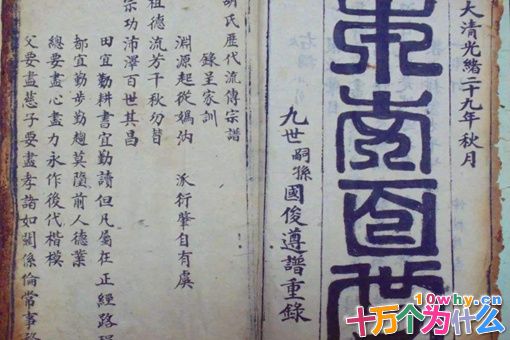 大清光緒二十九年秋月
百世
九世嗣孫國俊遵譜重錄
胡氏歷代流傳宗譜
錄呈家訓
淵源起從媯汭 派衍肇自有虞
祖德流芳千秋勿替
宗功沛澤百世其昌
田宜勤耕書宜勤讀但凡屬在正經路
都宜勤步勤趨莫墮前人德業
總要盡心盡力永作後代楷模
父要盡慈子要盡孝諸如關係倫常事務
10why.cn
十万个为什么